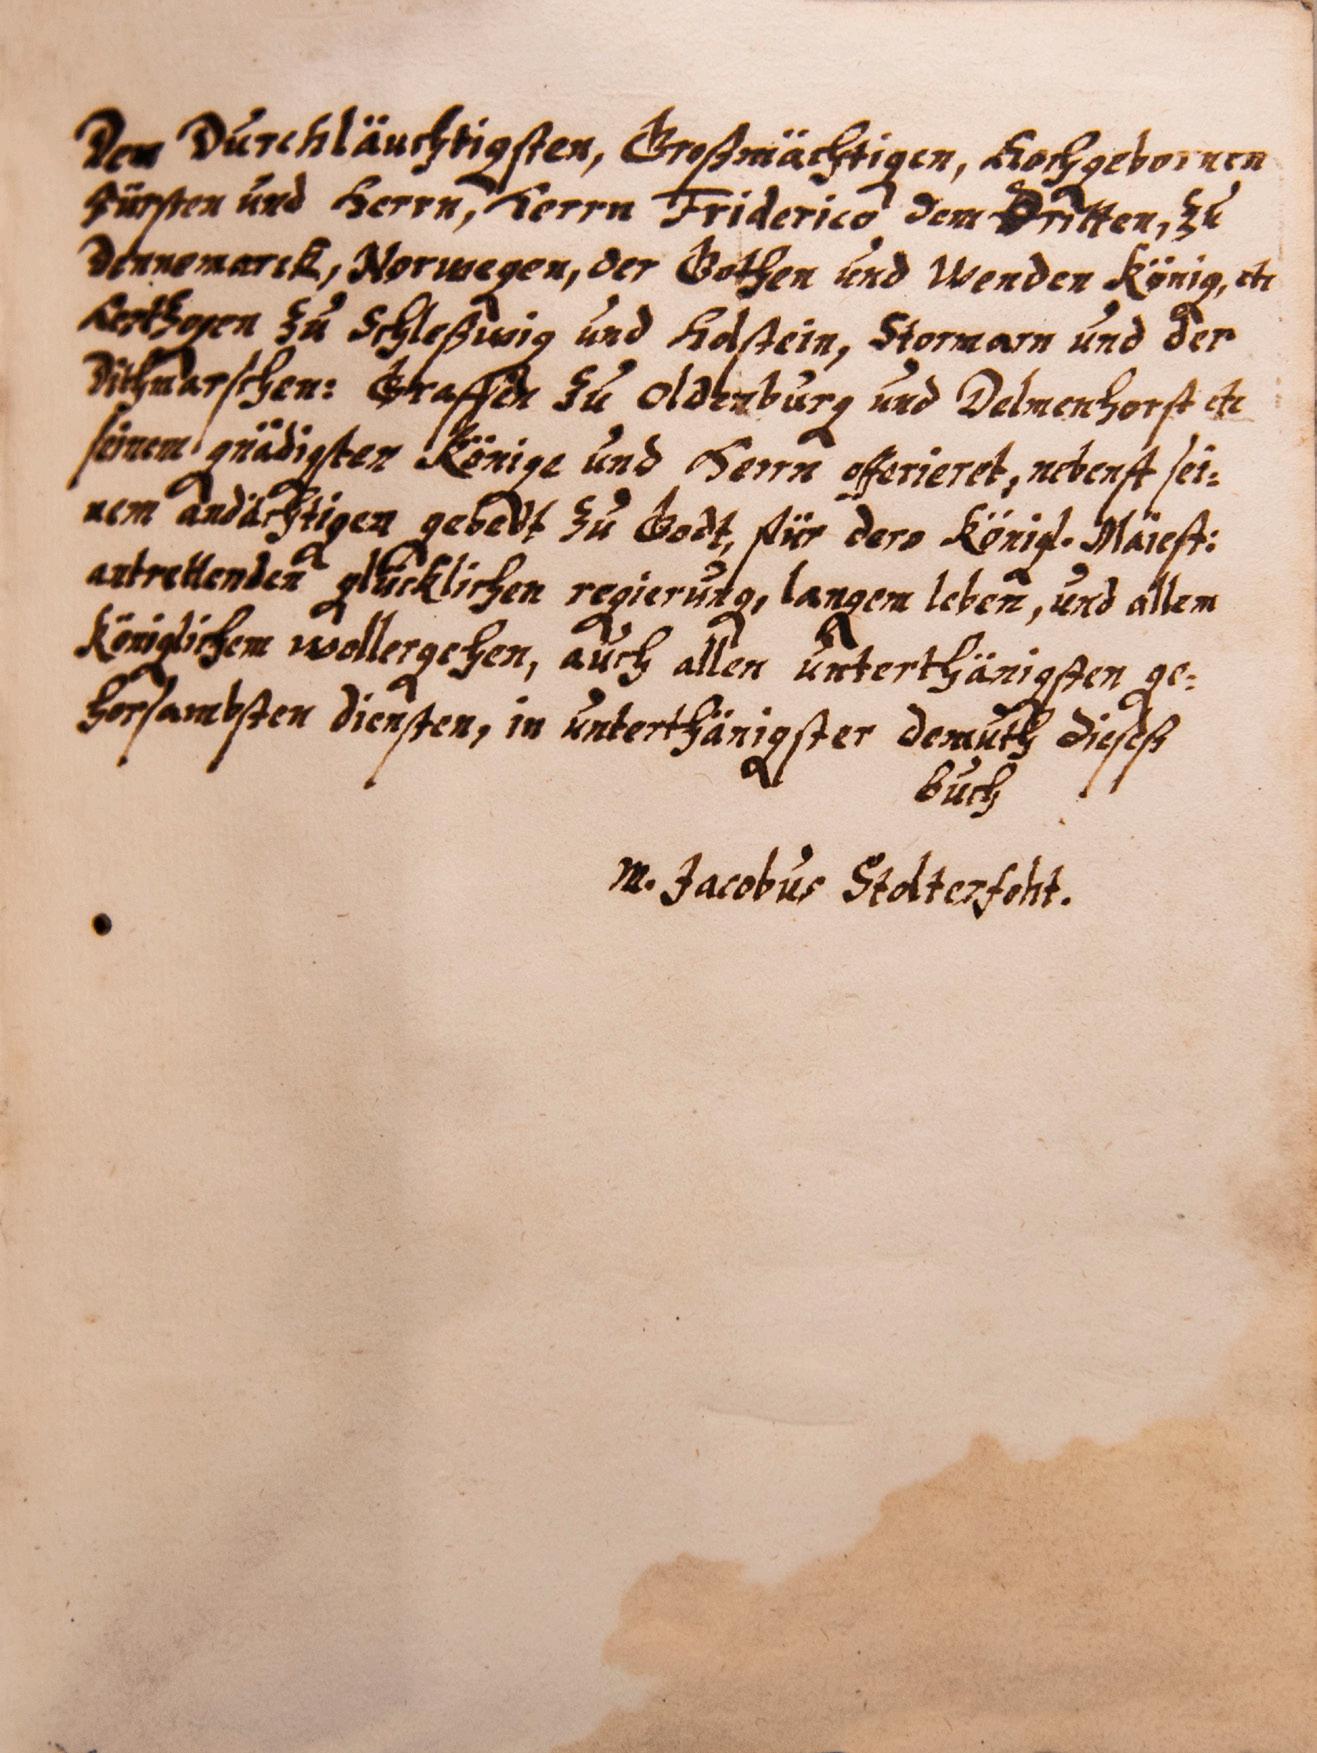 Dem Durchläuchtigsten, Großmächtigen, Hochgebornen
Fürsten und Herrn, Herrn Friderico dem Dritten, zu
Dennemarck, Norwegen, der Gothen und Wenden König, etc
Hertzogen zu Schleßwig und Holstein, Stormarn und der
Dithmarschen: Graffen zu Oldenburg und Delmenhorst etc
seinem gnädigsten Könige und Herrn offerieret, nebenst sei:
nem andächtigen gebedt zu Godt, für dero Königl. Maiest:
antrettenden glücklichen regierung, langem leben, und allem
Königlichem wollergehen, auch allen unterthänigsten ge:
horsambsten diensten, in unterthänigster demuth dieseß
buch
M. Jacobus Stolterfoht.